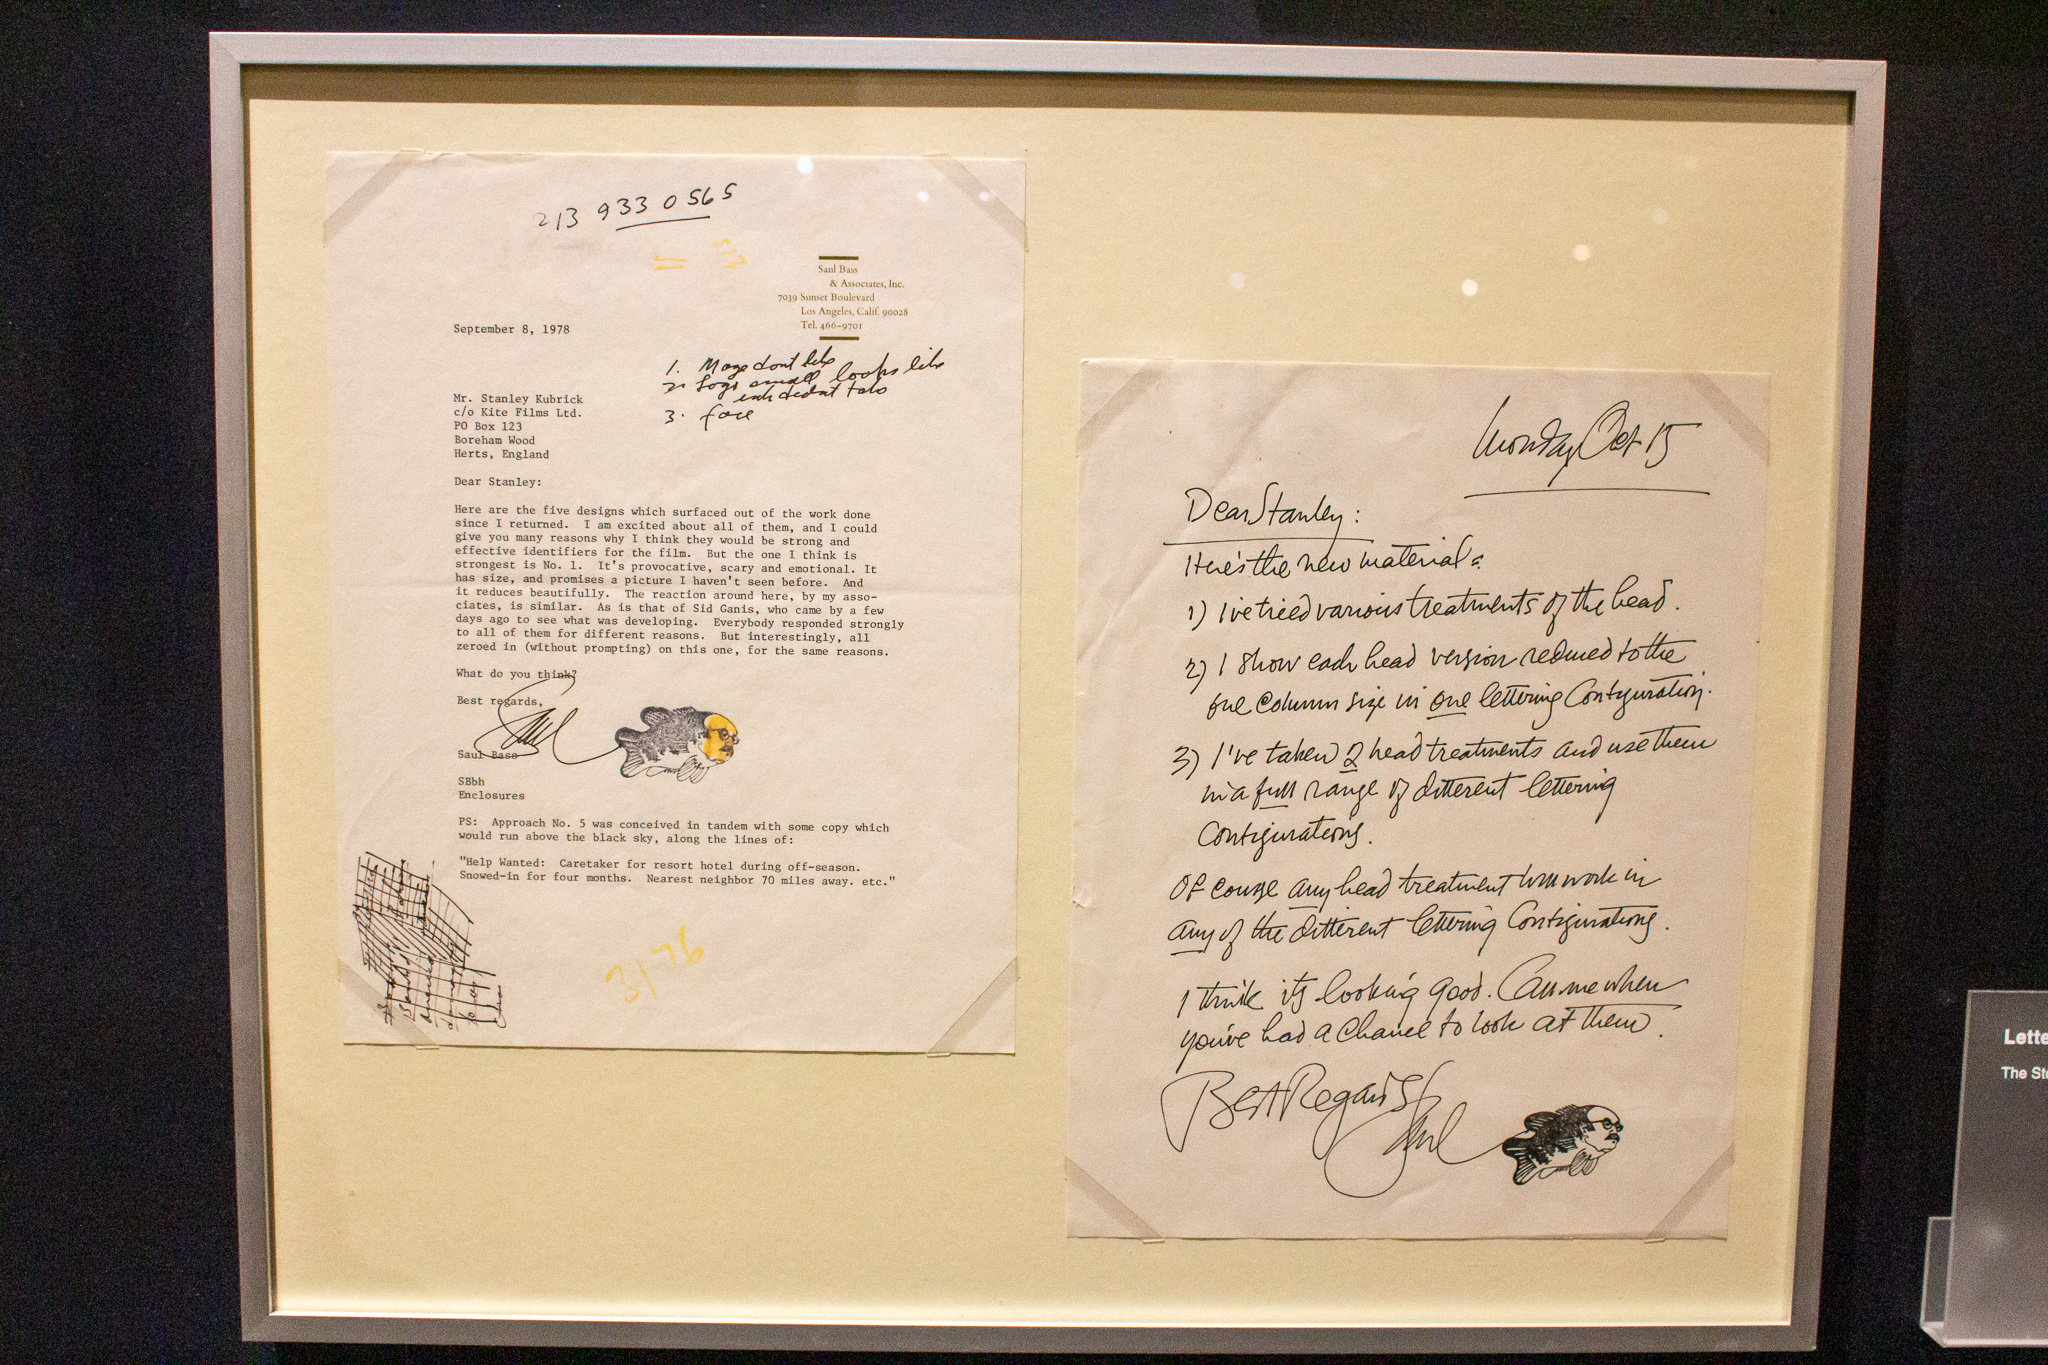 213 933 0565
Saul Bass
& Associates, Inc.
7039 Sunset Boulevard
Los Angeles, Calif. 90028
Tel. 466-9701
September 8, 1978
1. Maze dont like
2. Logo small looks like
ink didnt take
3. face
Mr. Stanley Kubrick
c/o Kite Films Ltd.
PO Box 123
Boreham Wood
Herts, England
Dear Stanley:
Here are the five designs which surfaced out of the work done
since I returned. I am excited about all of them, and I could
give you many reasons why I think they would be strong and
effective identifiers for the film. But the one I think is
strongest is No. 1. It's provocative, scary and emotional. It
has size, and promises a picture I haven't seen before. And
it reduces beautifully. The reaction around here, by my asso-
ciates, is similar. As is that of Sid Ganis, who came by a few
days ago to see what was developing. Everybody responded strongly
to all of them for different reasons. But interestingly, all
zeroed in (without prompting) on this one, for the same reasons.
What do you think?
Best regards,
Saul
Saul Bass
SBbh
Enclosures
PS: Approach No. 5 was conceived in tandem with some copy which
would run above the black sky, along the lines of:
"Help Wanted: Caretaker for resort hotel during off-season.
Snowed-in for four months. Nearest neighbor 70 miles away. etc."
3176
Monday Oct 15
Dear Stanley:
Here's the new material:
1) I've tried various treatments of the head.
2) I show each head version reduced to the
one column size in one lettering configuration.
3) I've taken 2 head treatments and use them
in a full range of different lettering
configurations.
Of course any head treatment will work in
any of the different lettering configurations.
I think it's looking good. Call me when
you've had a chance to look at them.
Best Regards,
Saul
Lette
The St